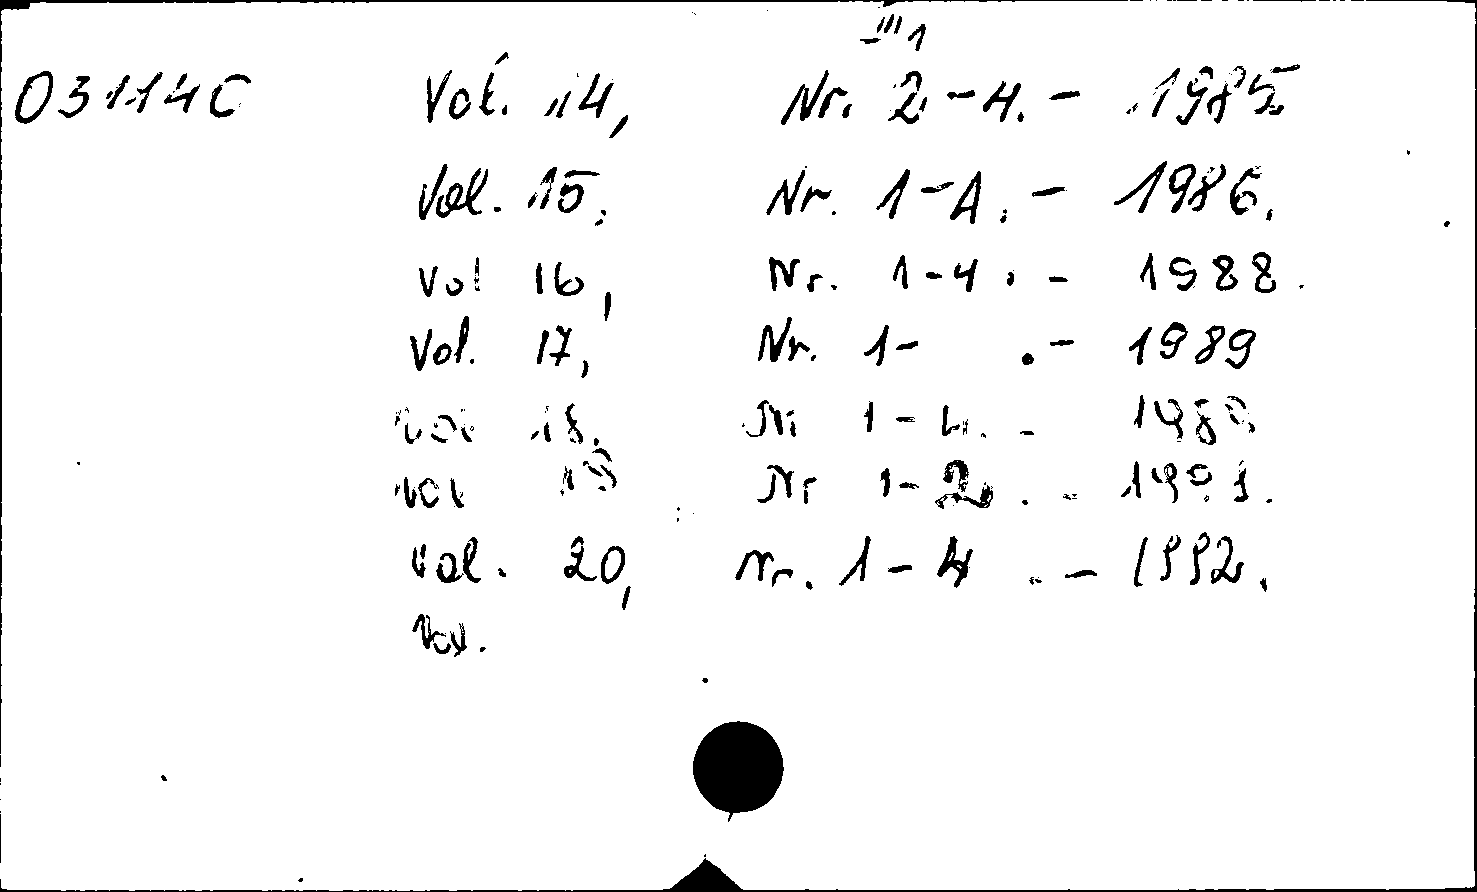 03114C Vol. 14, Nr. 2-4. - 1985
Vol. 15, Nr. 1-4. - 1986.
Vol 16, Nr. 1-4. - 1988.
Vol. 17, Nr. 1- .- 1989
Vol 18, Nr 1-4. - 1989
Vol 19 Nr 1-2. - 1991.
Vol. 20, Nr. 1-4 .- 1992.
Vol.